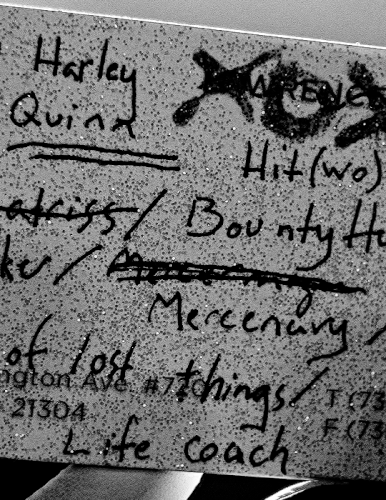 Harley
WRENCE
Quinn
Hit(wo)
/ Bounty Hu
ker / Mercenary /
of lost things /
ngton Ave. #7
21304
T (73
F (73
Life coach